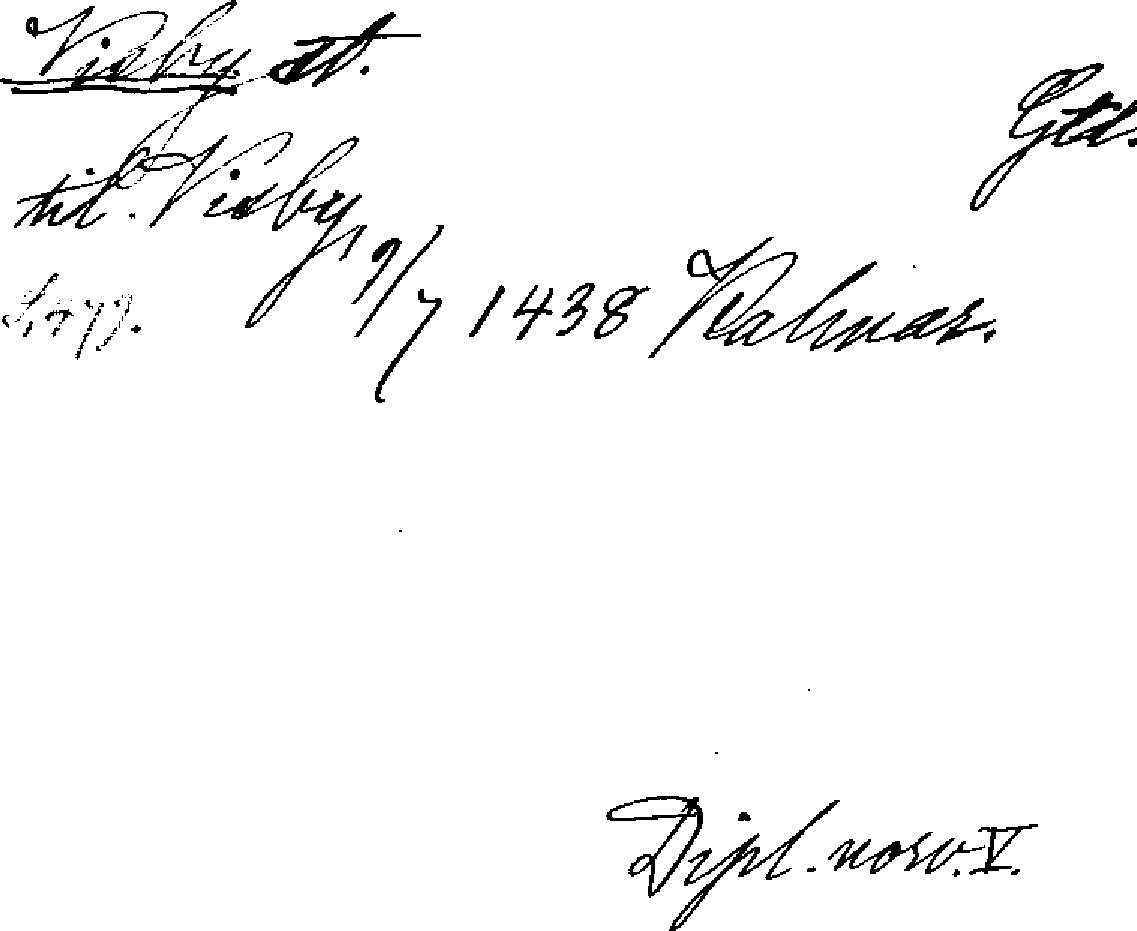 Visby st.
Gtl.
til Visby, 9/7 1438 Kalmar.
s. 479.
Dipl. norv. V.